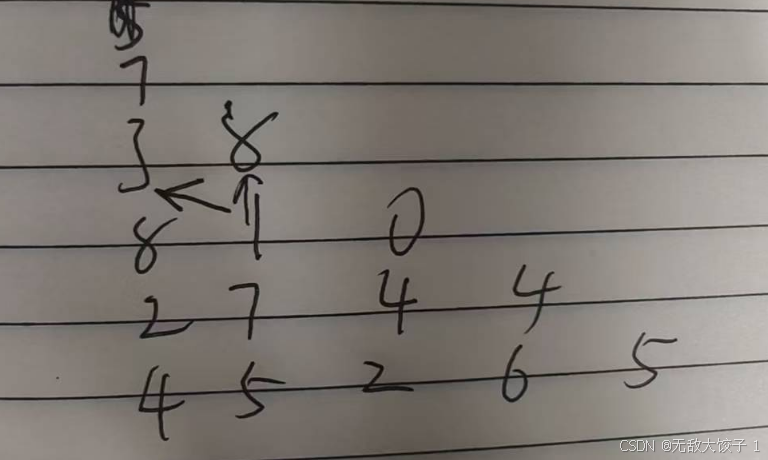 7
3 8
8 1 0
2 7 4 4
4 5 2 6 5
CSDN @无敌大饺子 1